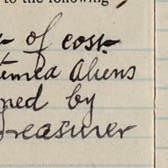 to the following
of cost
aliens
ned by
reasurer